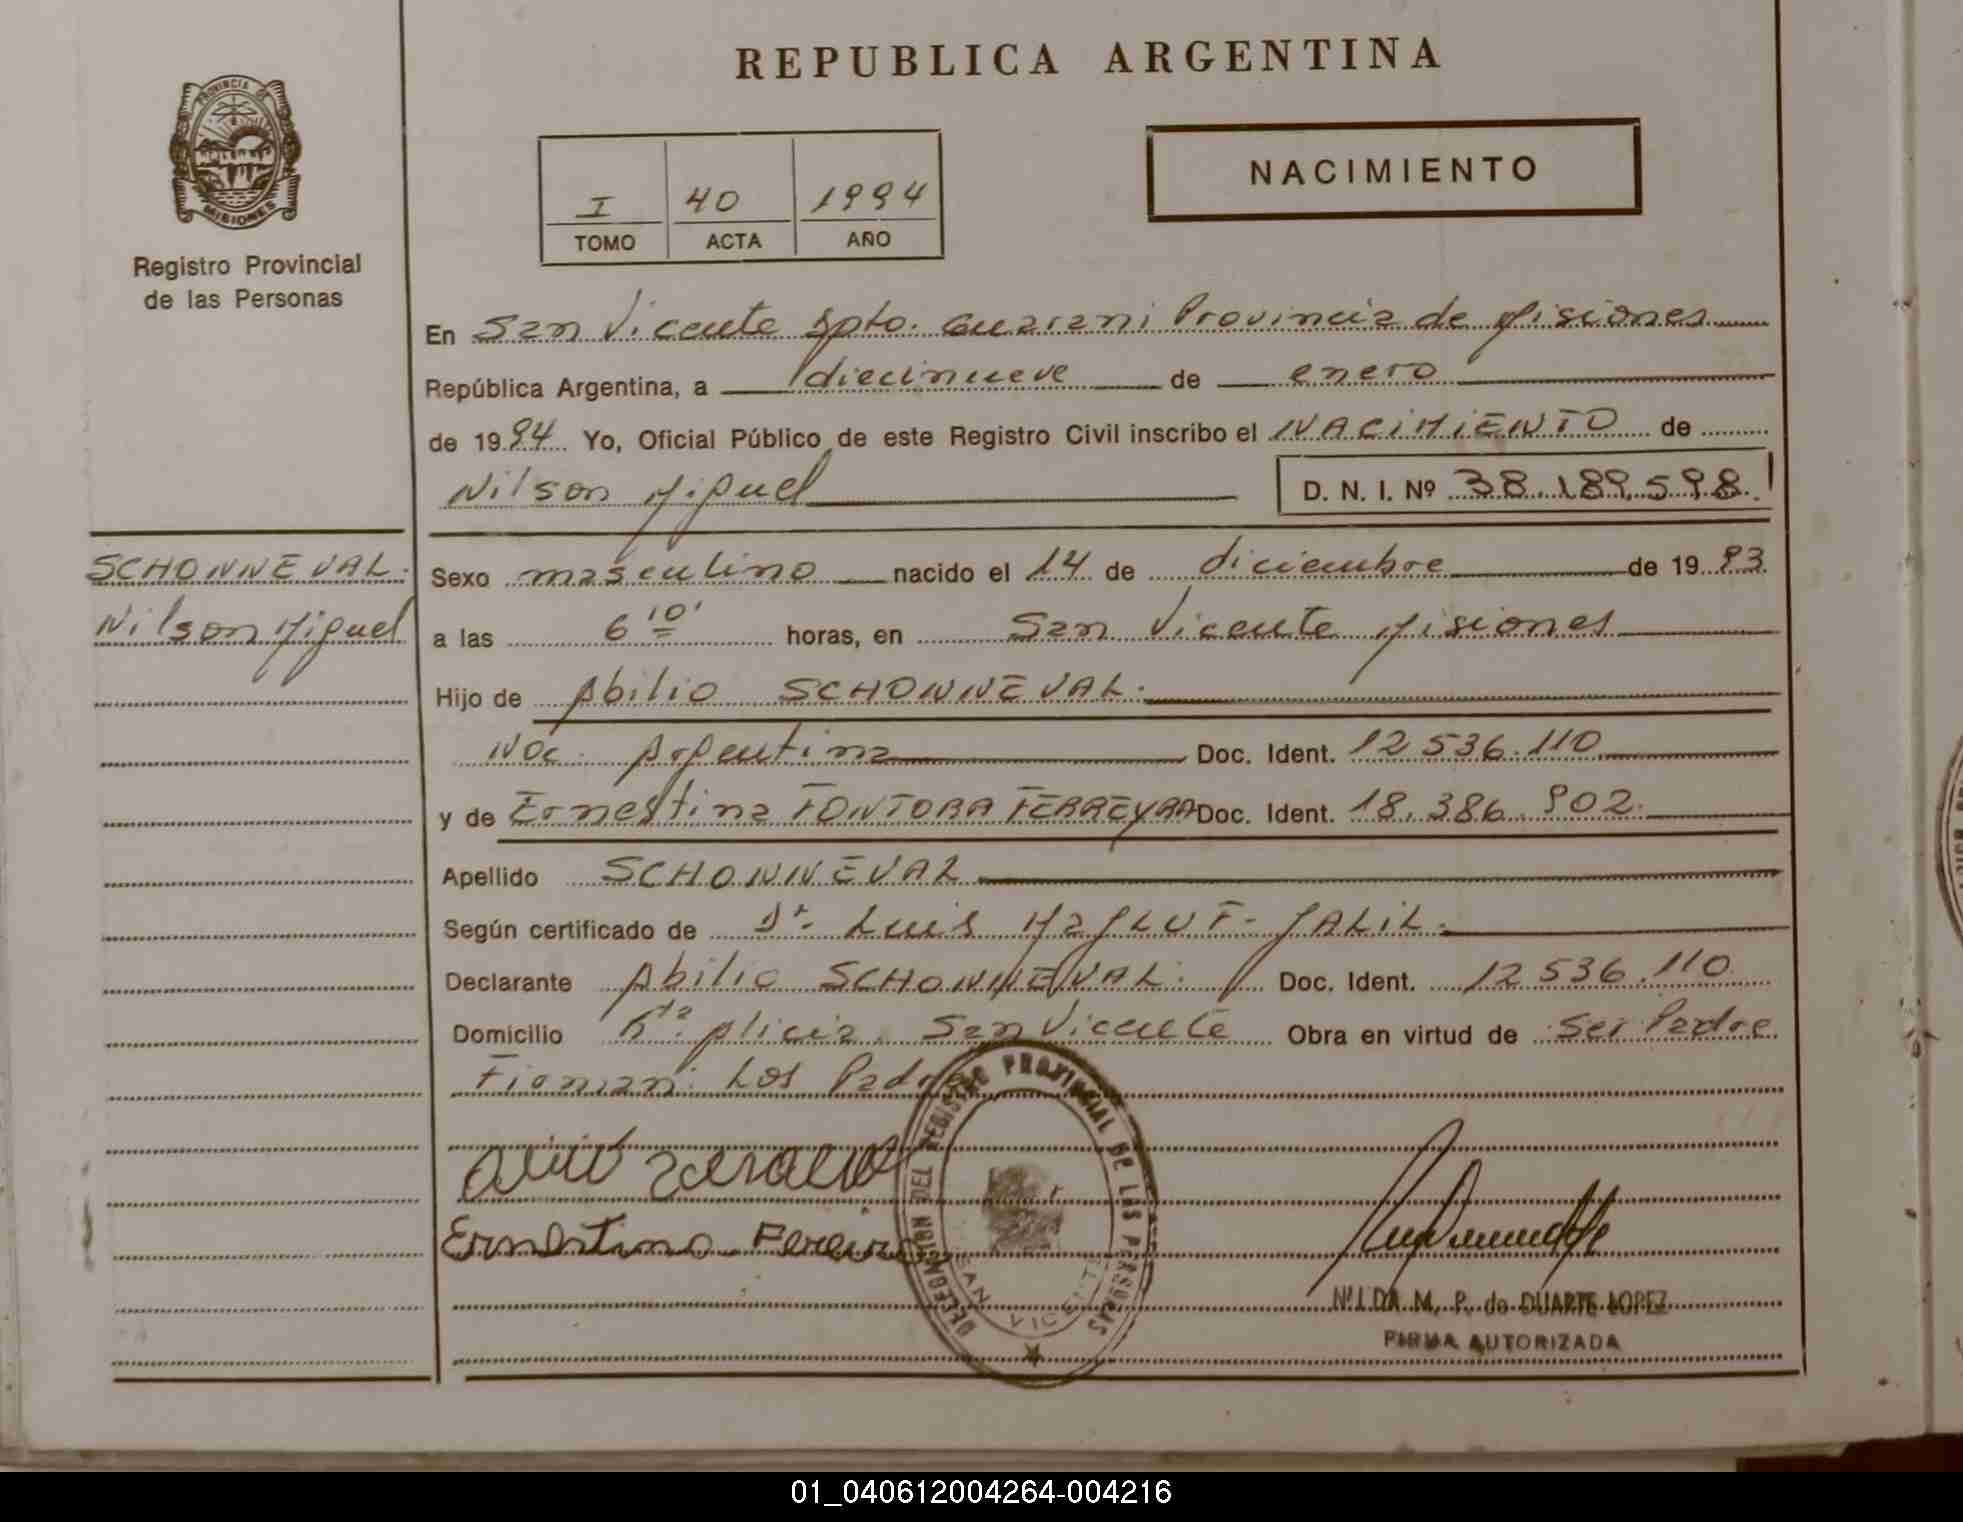 REPUBLICA ARGENTINA
PROVINCIA DE
MISIONES
Registro Provincial
de las Personas
NACIMIENTO
I 40 1994
TOMO ACTA AÑO
En San Vicente Dpto. Guarani Provincia de Misiones
República Argentina, a diecinueve de enero
de 1994 Yo, Oficial Público de este Registro Civil inscribo el NACIMIENTO de
Nilson Miguel D. N. I. Nº 38.189.598
SCHONNEVAL.
Nilson Miguel
Sexo masculino nacido el 14 de diciembre de 1993
a las 6 10' horas, en San Vicente Misiones
Hijo de Abilio SCHONNEVAL.
Nac. Argentina Doc. Ident. 12.536.110
y de Ernestina FONTORA FERREYRA Doc. Ident. 18.386.902.
Apellido SCHONNEVAL
Según certificado de Dr. Luis MaJLUF-JALIL.
Declarante Abilio SCHONNEVAL. Doc. Ident. 12.536.110
Domicilio Km. Alicia. San Vicente Obra en virtud de Ser Padre
Firman: Los Padres
Ernestina Pereira
DELEGACION DEL REGISTRO PROVINCIAL DE LAS PERSONAS
SAN VICENTE
NILDA M. P. de DUARTE LOPEZ
FIRMA AUTORIZADA
01_040612004264-004216